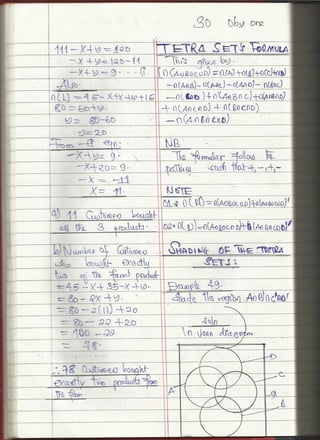 30 Oby one
111 - x + y = 120
- x + y = 120 - 111
- x + y = 9
Also
n(L) = 45 - x + x + y + 15
80 = 60 + y
y = 80 - 60
y = 20
From eqn:
- x + y = 9
- x + 20 = 9
- x = - 11
x = 11
a) 11 Customers bought
all the 3 products.
b) Number of Customers
who bought exactly
two of the farm product
= 45 - x + 35 - x + y
= 80 - 2x + y
= 80 - 2(11) + 20
= 80 - 22 + 20
= 100 - 22
= 78
∴ 78 Customers bought
exactly two products from
the farm.
TETRA SET'S FORMULA
This given by.
n(AUBUCUD) = n(A) + n(B) + n(C) + n(D)
- n(AnB) - n(AnC) - n(AnD) - n(BnC)
+ n(AnBnC) + n(AnBnD)
+ n(AnCnD) + n(BnCnD)
- n(AnBnCnD)
NB
The formular follow the
pattern such that +, -, +, -
NOTE
SHADING OF THE TETRA
SETS:
Example 49.
Shade the region
soln
In venn diagram
A
D
C
B